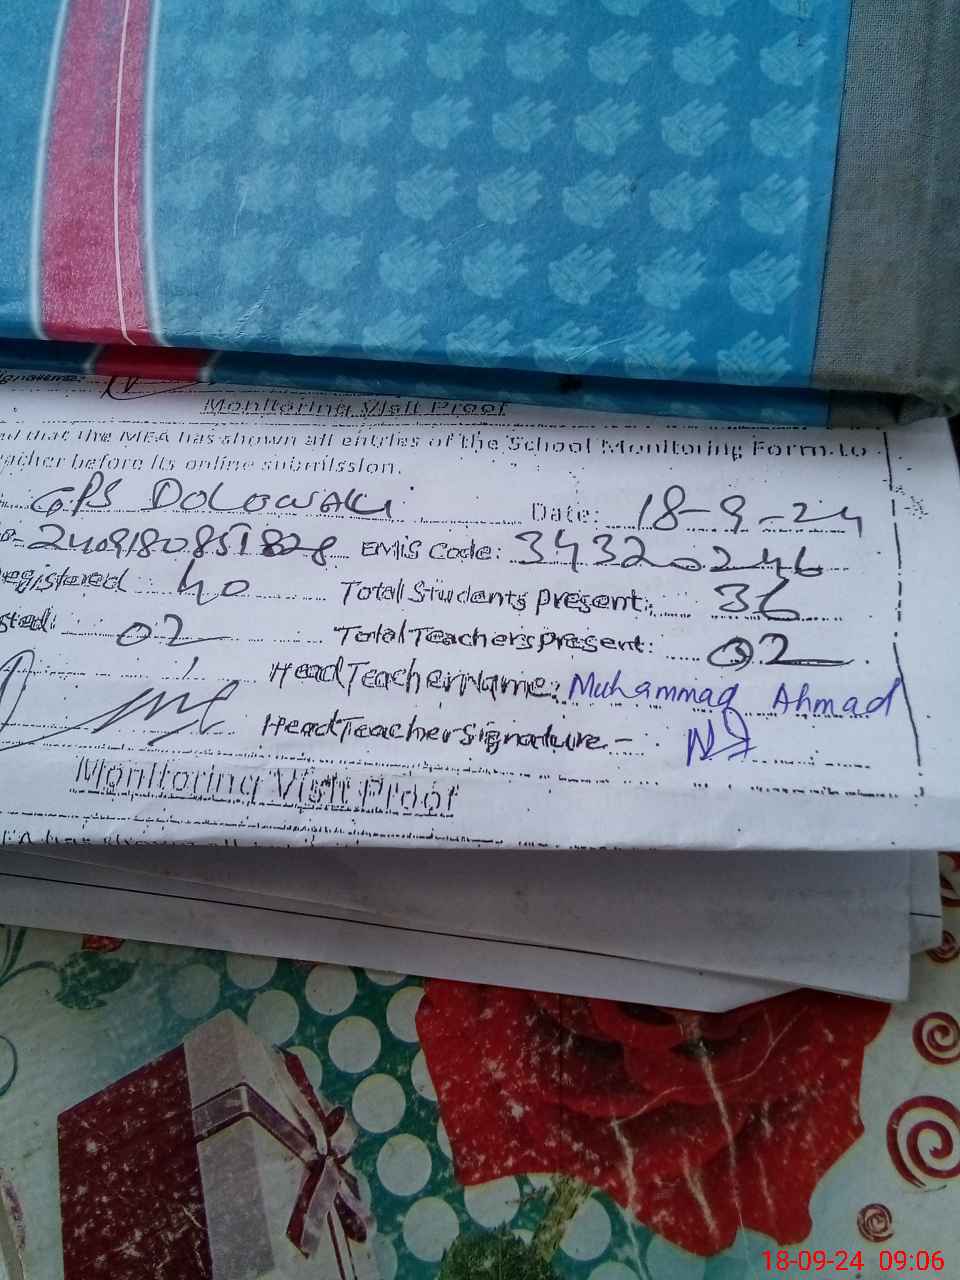 ignature:
Monitoring Visit Proof
ed that the MEA has shown all entries of the School Monitoring Form to
eacher before its online submission.
GPS DOLOWALI Date: 18-9-24
2409180851828 EMIS Code: 34320246
egistered 40 Total Students present: 36
sted: 02 Total Teachers present: 02
Head Teacher Name: Muhammad Ahmad
Head Teacher Signature -
Monitoring Visit Proof
18-09-24 09:06